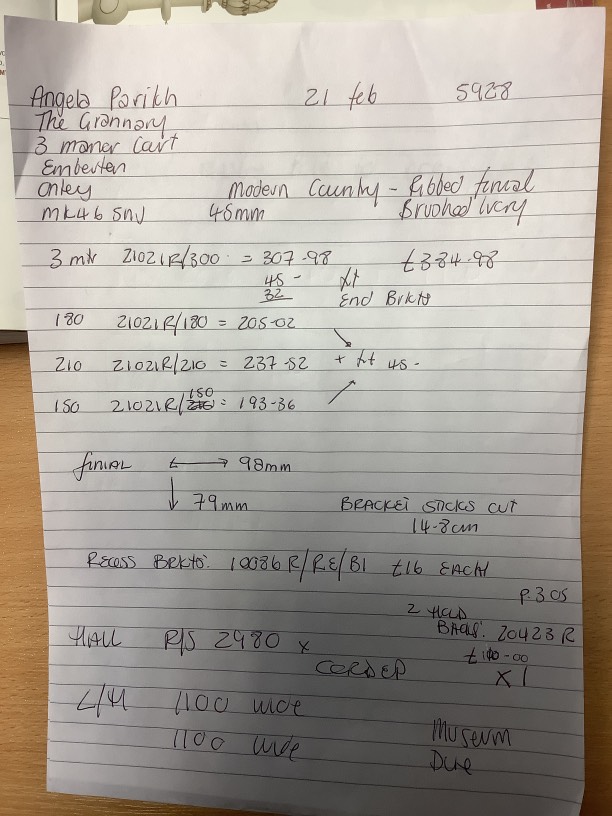 Angela Parikh 21 feb 5928
The Grannary
3 maner Cart
Emberten
Onley Modern County - Ribbed finial
MK46 5NJ 45mm Brushed Ivory
3 mtr 21021R/300 = 307-98 £384.98
45 - ft
32 End Brkts
180 21021R/180 = 205-02
210 21021R/210 = 237-52 + ft 45 -
150 21021R/150 = 193-36
FINIAL ↔ 98mm
↓ 79mm BRACKET STICKS OUT
14-8cm
RECESS BRKTS. 10086R/RE/BI £16 EACH
P.305
2 HOLD
BACKS. 20423R
HALL R/S 2980 x £100-00
CORDED x1
L/H 1100 wide
1100 wide Museum
Dve